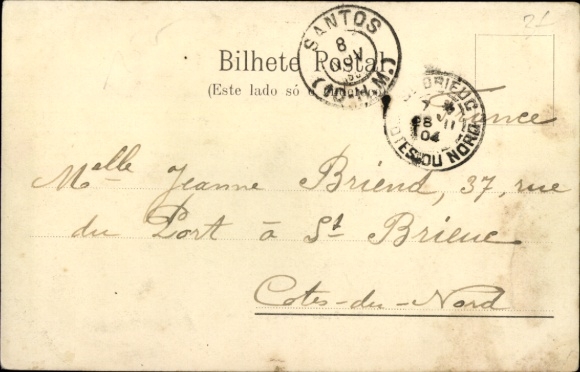 21
SANTOS
8
Bilhete Postal
(Este lado só
ST BRIEUC
28
04
COTES DU NORD
France
Melle Jeanne Briend, 37, rue
du Port à St Brieuc
Cotes-du-Nord